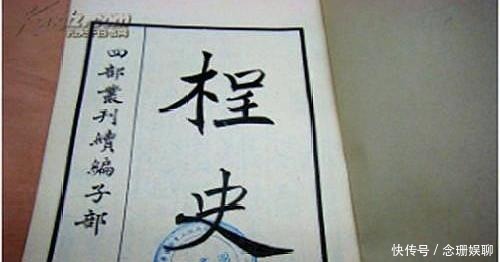 四部叢刊續編子部
桯史
快传号／念珊娱聊